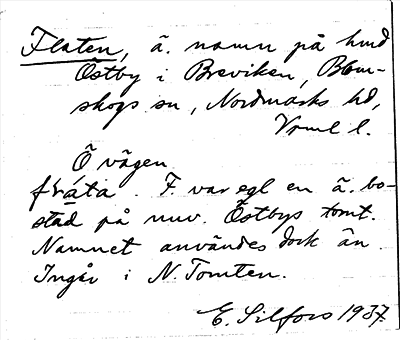 Flaten, ä. namn på hmd
Östby i Breviken, Blom-
skogs sn, Nordmarks hd,
Vrml l.
Ö vägen
flåta. F. var egl en ä. bo-
stad på nuv. Östbys tomt.
Namnet användes dock än.
Ingår i N. Tomten.
E. Silfors 1937.